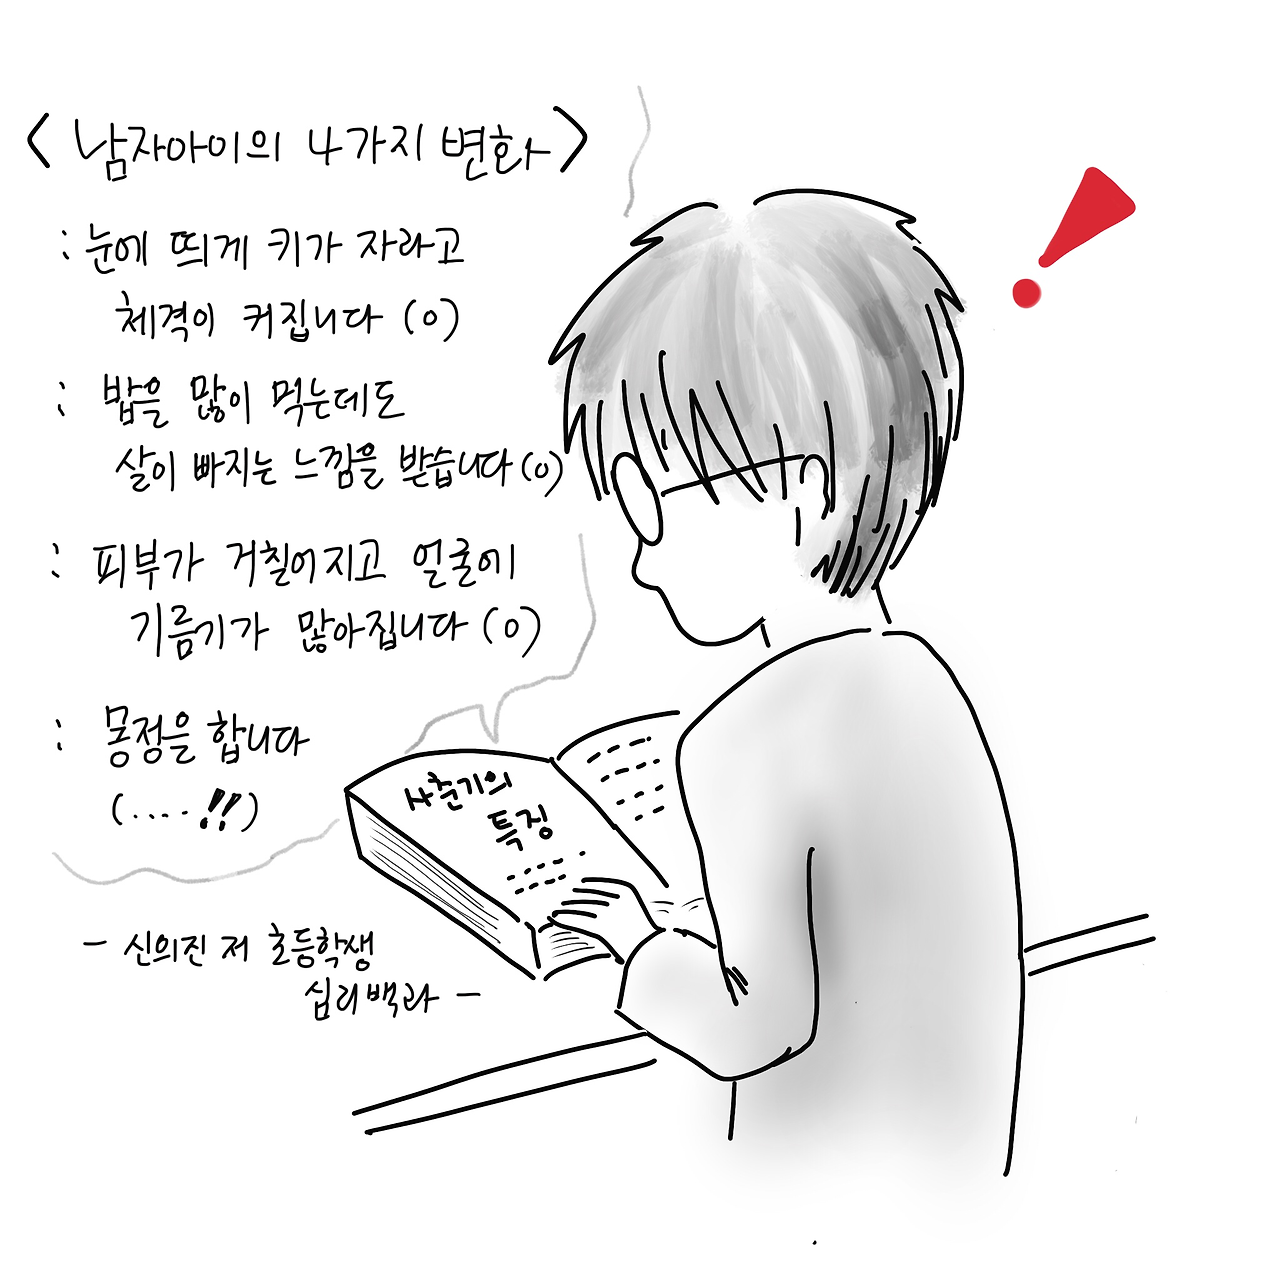 < 남자아이의 4가지 변화 >
: 눈에 띄게 키가 자라고
체격이 커집니다 (o)
: 밥을 많이 먹는데도
살이 빠지는 느낌을 받습니다 (o)
: 피부가 거칠어지고 얼굴에
기름기가 많아집니다 (o)
: 몽정을 합니다
(.....!!)
사춘기의
특징
- 신의진 저 초등학생
심리백과 -